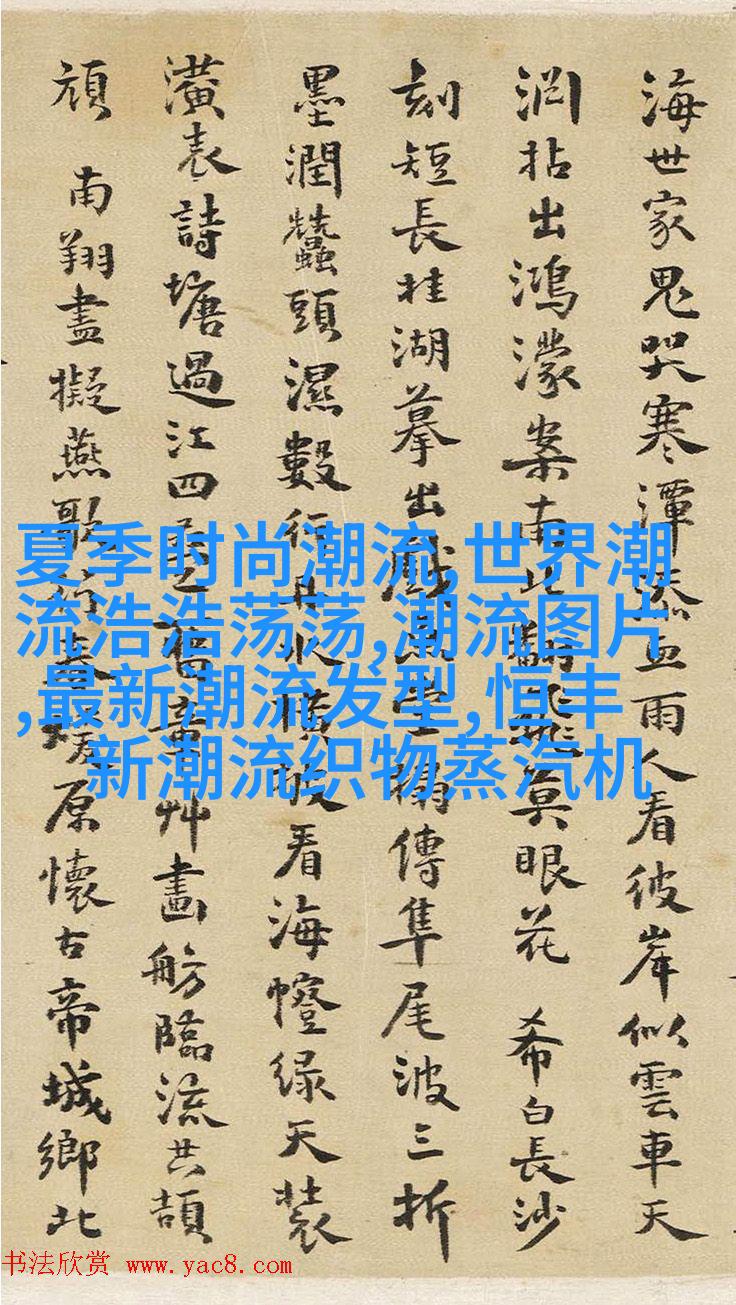 海世家鬼哭寒潭添血雨人看彼岸似雲車天
淵拈出鴻濛案南北翻飛莫眼花 希白長沙
刻短長桂湖摹出戲魚堂搨傳隼尾波三折
墨潤蠶頭濕數行丹水橫坡看海幢緑天裝
潢表詩塘過江四之舊章艸畫舫臨流共頡
頏 南翔盡擬燕歌行春原懷古帝城鄉北
夏季时尚潮流,世界潮
流浩浩荡荡,潮流图片
,最新潮流发型,恒丰
新潮流织物蒸汽机
书法欣赏 www.yac8.com